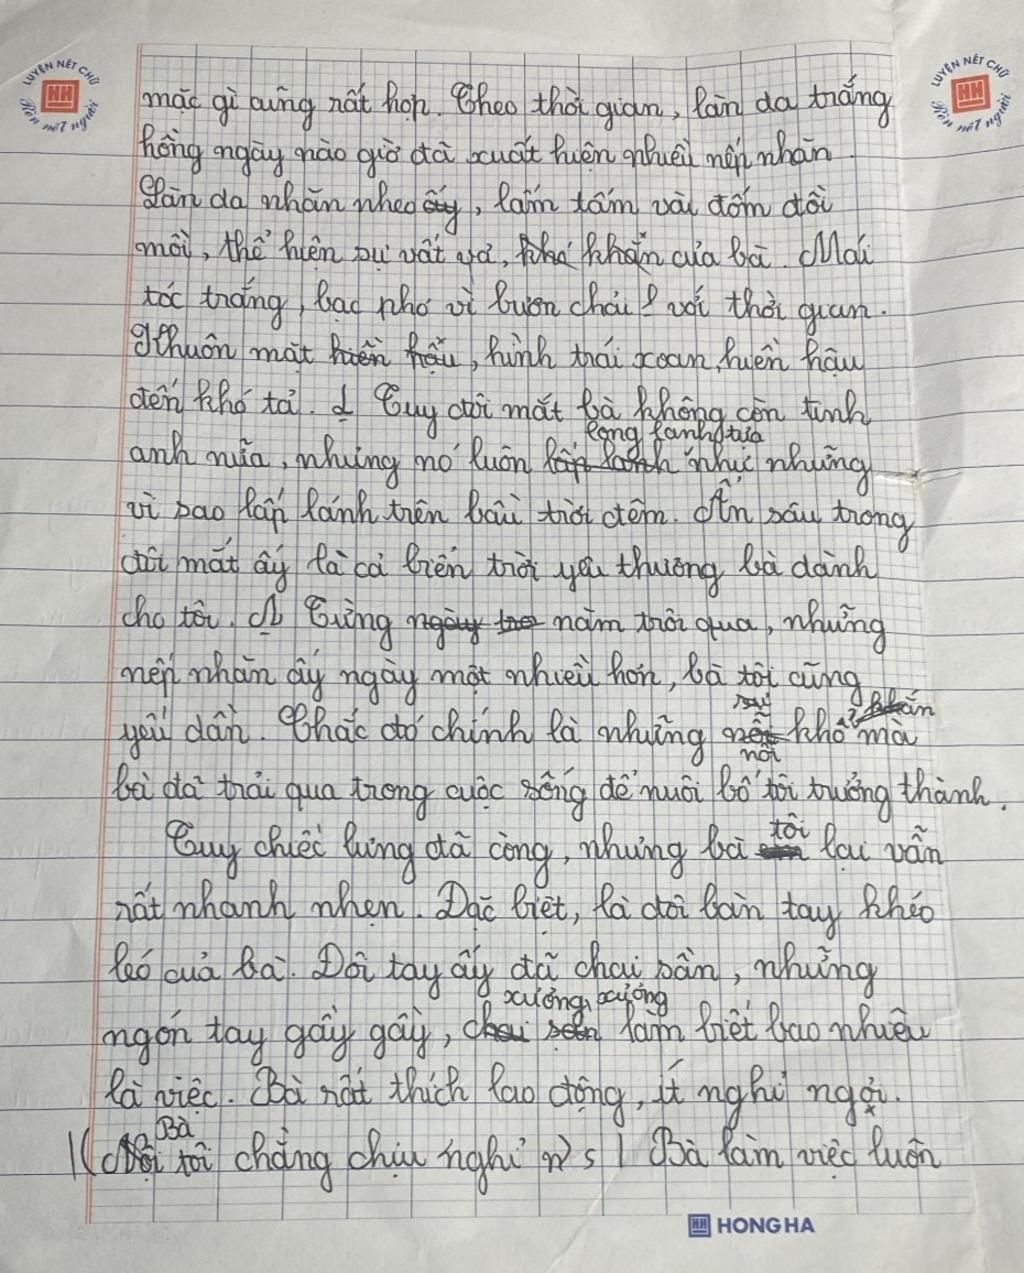 LUYỆN NÉT CHỮ
Rèn nết người
LUYỆN NÉT CHỮ
Rèn nết người
mặc gì cũng rất hợp. Theo thời gian, làn da trắng
hồng ngày nào giờ đã xuất hiện nhiều nếp nhăn.
Làn da nhăn nheo ấy, lấm tấm vài đốm đồi
mồi, thể hiện sự vất vả, khó khăn của bà. Mái
tóc trắng, bạc phơ vì buơn chải với thời gian.
Khuôn mặt hiền hậu, hình trái xoan, hiền hậu
đến khó tả. Tuy đôi mắt bà không còn tinh
long lanh tựa
anh nữa, nhưng nó luôn lấp lanh như những
vì sao lấp lánh trên bầu trời đêm. Ẩn sâu trong
đôi mắt ấy là cả biển trời yêu thương bà dành
cho tôi. Từng ngày năm trôi qua, những
nếp nhăn ấy ngày một nhiều hơn, bà tôi cũng
yếu dần. Chắc đó chính là những khổ mà
nỗi
bà đã trải qua trong cuộc sống để nuôi bố tôi trưởng thành.
Tuy chiếc lưng đã còng, nhưng bà tôi lại vẫn
rất nhanh nhẹn. Đặc biệt, là đôi bàn tay khéo
léo của bà. Đôi tay ấy đã chai sần, những
xương xương
ngón tay gầy gầy, chai sần làm biết bao nhiêu
là việc. Bà rất thích lao động, ít nghỉ ngơi.
Bà
Nội tôi chẳng chịu nghỉ Bà làm việc luôn
HH HONG HA